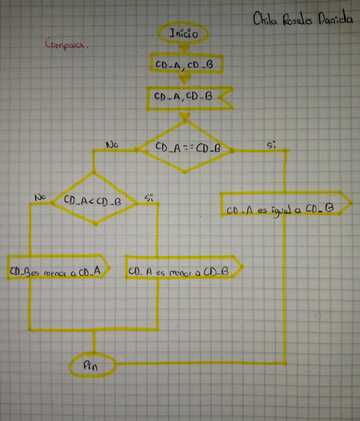 Chila Rosales Daniela
Comparar.
Inicio
CD_A, CD_B
CD_A, CD_B
CD_A==CD_B
No
Si
CD_A<CD_B
No
Si
CD_A es igual a CD_B
CD_B es menor a CD_A
CD_A es menor a CD_B
Fin